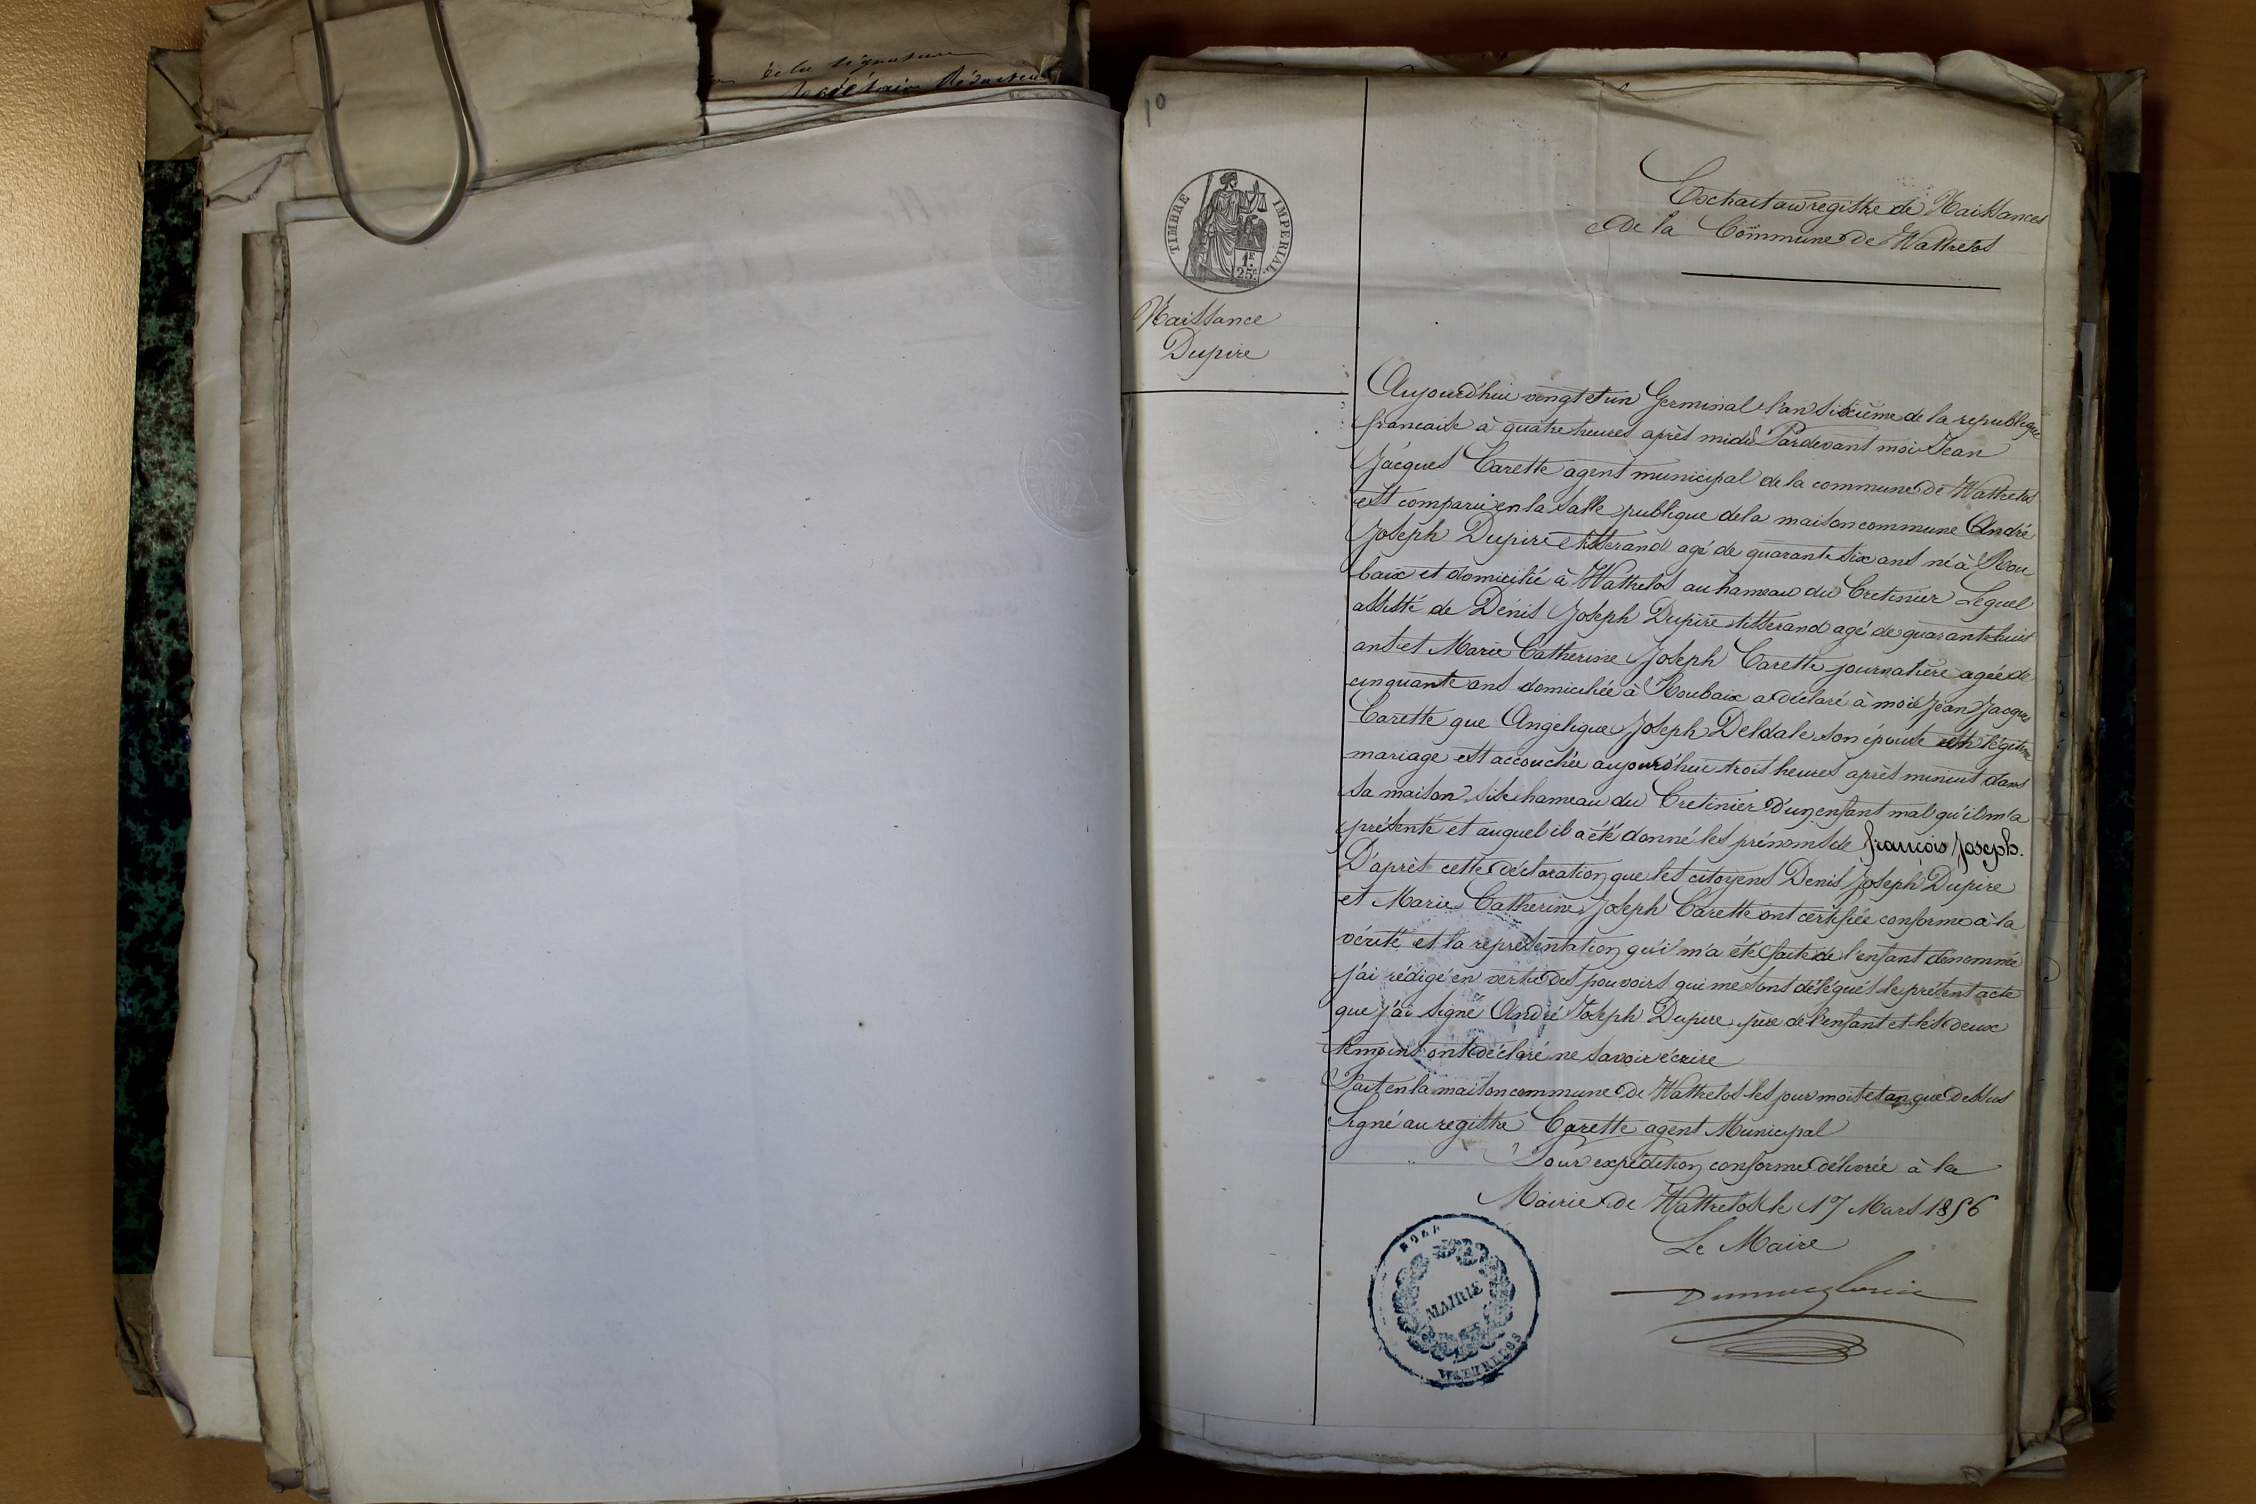 de la signature
Secrétaire Rédacteur
10
TIMBRE IMPERIAL
1F
25c
Naissance
Dupire
Extrait au registre de Naissances
de la Commune de Wattrelos
Aujourd'hui vingt et un Germinal l'an sixième de la republique
francaise à quatre heures après midi Pardevant moi Jean
Jacques Carette agent municipal de la commune de Wattrelos
est comparu en la salle publique de la maison commune André
Joseph Dupire tisserand agé de quarante six ans né à Rou
baix et domicilié à Wattrelos au hameau du Cretinier Lequel
assisté de Dénis Joseph Dupire tisserand agé de quarante huit
ans et Marie Catherine Joseph Carette journalière agée de
cinquante ans domiciliée à Roubaix a déclaré à moi Jean Jacques
Carette que Angélique Joseph Deldale son épouse en légitime
mariage est accouchée aujourd'hui trois heures après minuit dans
sa maison sise hameau du Cretinier d'un enfant mal qu'il m'a
présenté et auquel il a été donné les prénoms de françois Joseph.
D'après cette déclaration que les citoyens Denis Joseph Dupire
et Marie Catherine Joseph Carette ont certifiée conforme à la
vérité et la représentation qu'il m'a été faite de l'enfant dénommé
j'ai rédigé en vertu des pouvoirs qui me sont délégués le présent acte
que j'ai signé André Joseph Dupire père de l'enfant et les deux
témoins ont déclaré ne savoir écrire
Fait en la maison commune de Wattrelos les jour mois et an que dessus
Signé au registre Carette agent Municipal
Pour expédition conforme délivrée à la
Mairie de Wattrelos le 17 Mars 1856
Le Maire
MAIRIE
WATTRELOS